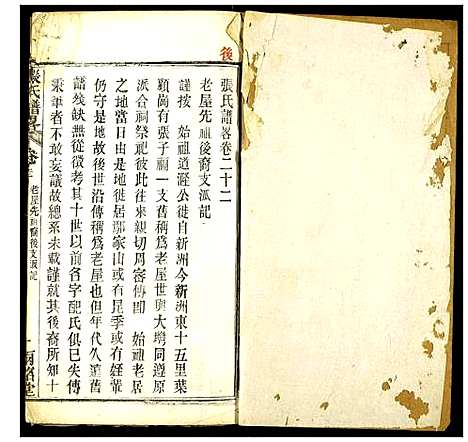 後
張氏譜畧卷二十二
老屋先祖後裔支派記
謹按 始祖道滙公徙自新洲今新洲東十五里葉
顧崗有張子祠一支舊稱爲老屋世與大塆同遵原
派合祠祭祀此往來親切周寄傳即 始祖老居
之地當日由是地徙居鄒家山或有昆季或有姪輩
仍守是地故後世沿傳稱爲老屋也但年代久遠舊
譜殘缺無從徵考其十世以前名字配氏俱已失傳
秉筆者不敢妄議故總系未載謹就其後裔所知十
張氏譜畧
卷
老屋先祖裔後支派記
一
堂